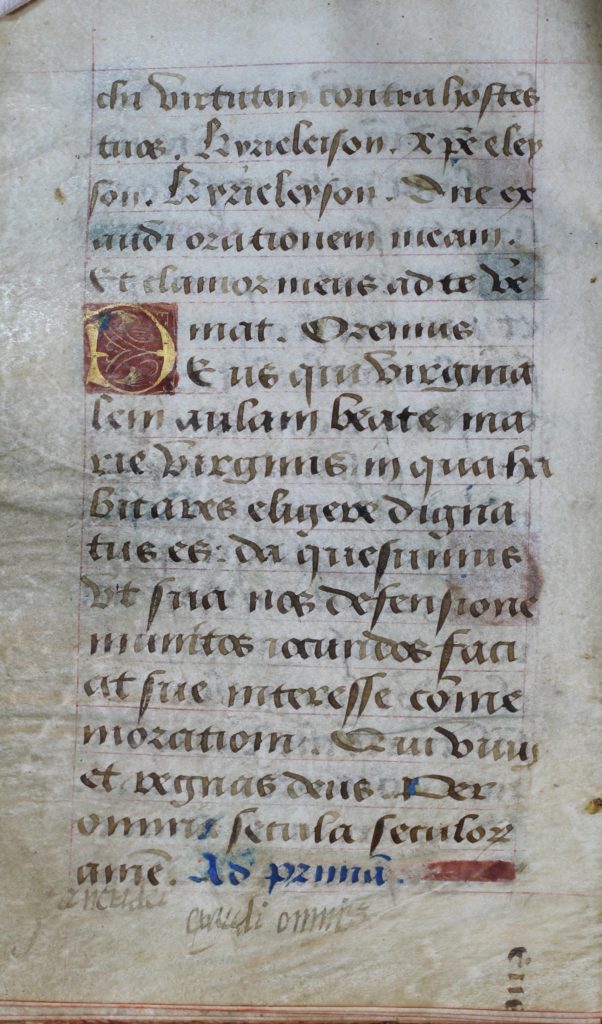 chi virtutem contra hostes
tuos. Kyrieleison. xpē eley
son. Kyrieleyson. Dne ex
audi orationem meam.
Et clamor meus ad te ve
niat. Oremus
Deus qui virgina
lem aulam beate ma
rie virginis in qua ha
bitares eligere digna
tus es: da quesumus
vt sua nos defensione
munitos iocundos faci
at sue interesse cōme
morationi. Qui viuis
et regnas deus. Per
omnia secula seculor
amē. Ad primā.
omnis